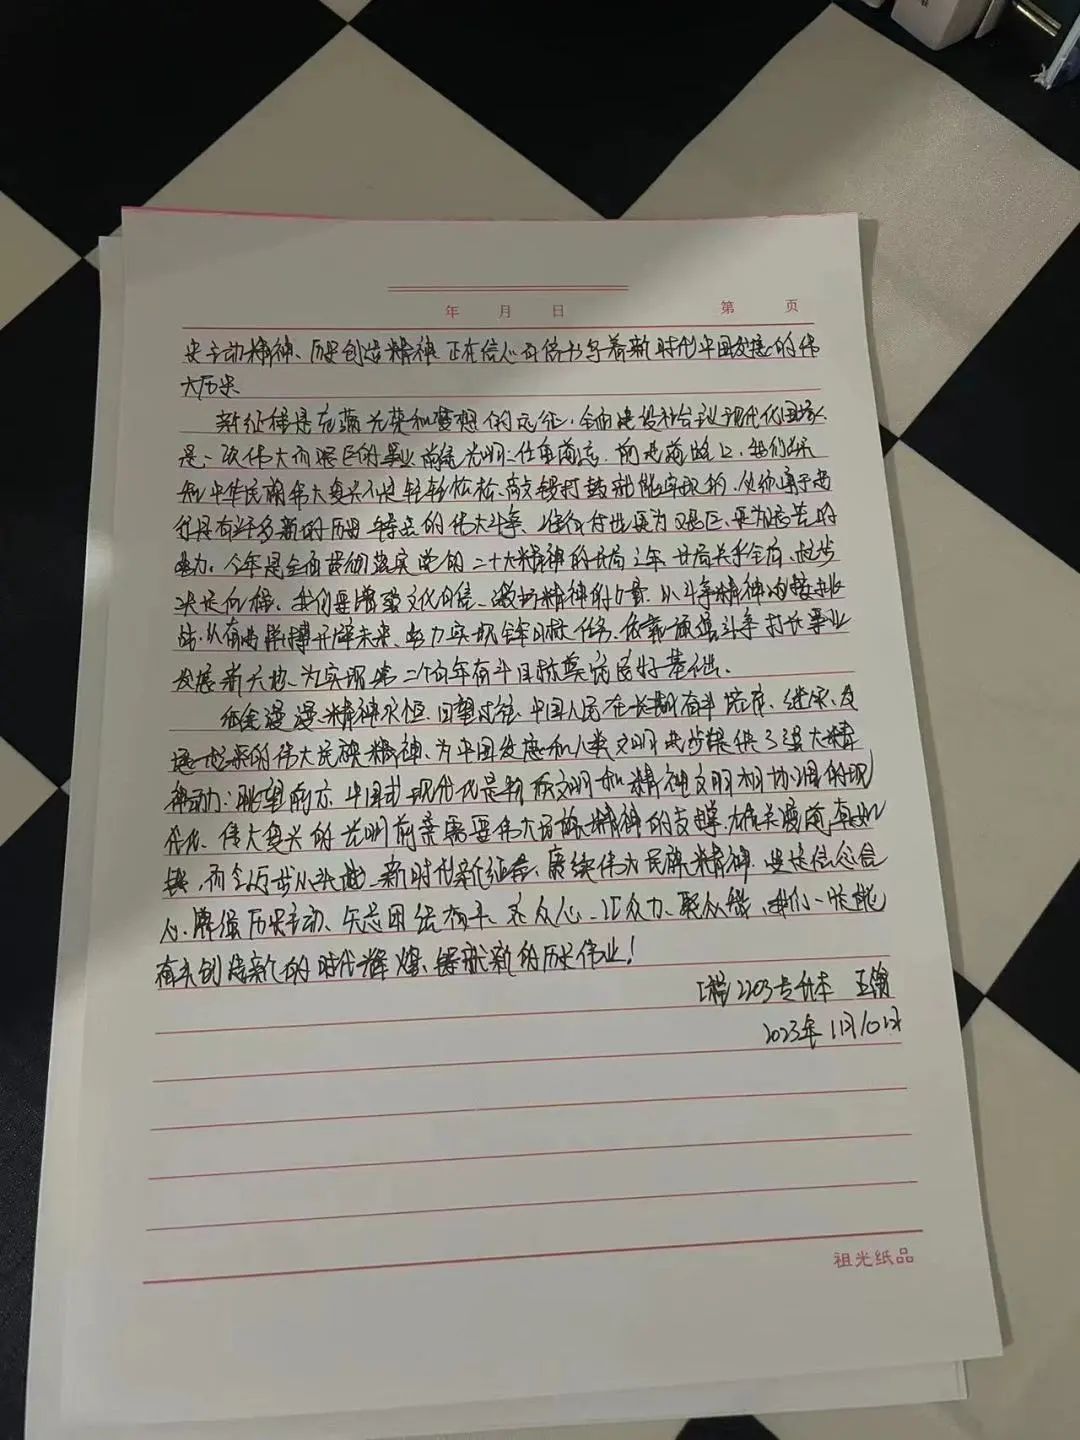 年 月 日 第 页
史主动精神、历史创造精神,正在信心百倍书写着新时代中国发展的伟
大历史
新征程是充满光荣和梦想的远征.全面建设社会主义现代化国家
是一项伟大而艰巨的事业,前途光明,任重道远.前进道路上,我们
中华民族伟大复兴不是轻轻松松、敲锣打鼓就能实现的,必须
具有许多新的历史特点的伟大斗争、准备付出更为艰巨、更为艰苦的
努力。今年是全面贯彻落实党的二十大精神的开局之年,开局关乎全局,起步
决定后程.我们要增强文化自信、激扬精神的力量.以斗争精神迎接挑
战,从奋勇拼搏开辟未来、努力实现全年目标任务.依靠顽强斗争打开事业
发展新天地、为实现第二个百年奋斗目标奠定良好基础.
征途漫漫,精神永恒.回望过往,中国人民在长期奋斗培育、继承、发
展起来的伟大民族精神、为中国发展和人类文明进步提供了强大精
神动力;眺望前方,中国式现代化是物质文明和精神文明相协调的现
代化、伟大复兴的光明前景需要伟大民族精神的支撑.雄关漫道真如
铁,而今迈步从头越.新时代新征程,赓续伟大民族精神.坚定信念信
心、增强历史主动、矢志团结奋斗、齐众心、汇众力、聚众智,我们一定能
够创造新的时代辉煌、铸就新的历史伟业!
工程2203专升本 王
2023年11月10日
祖光纸品